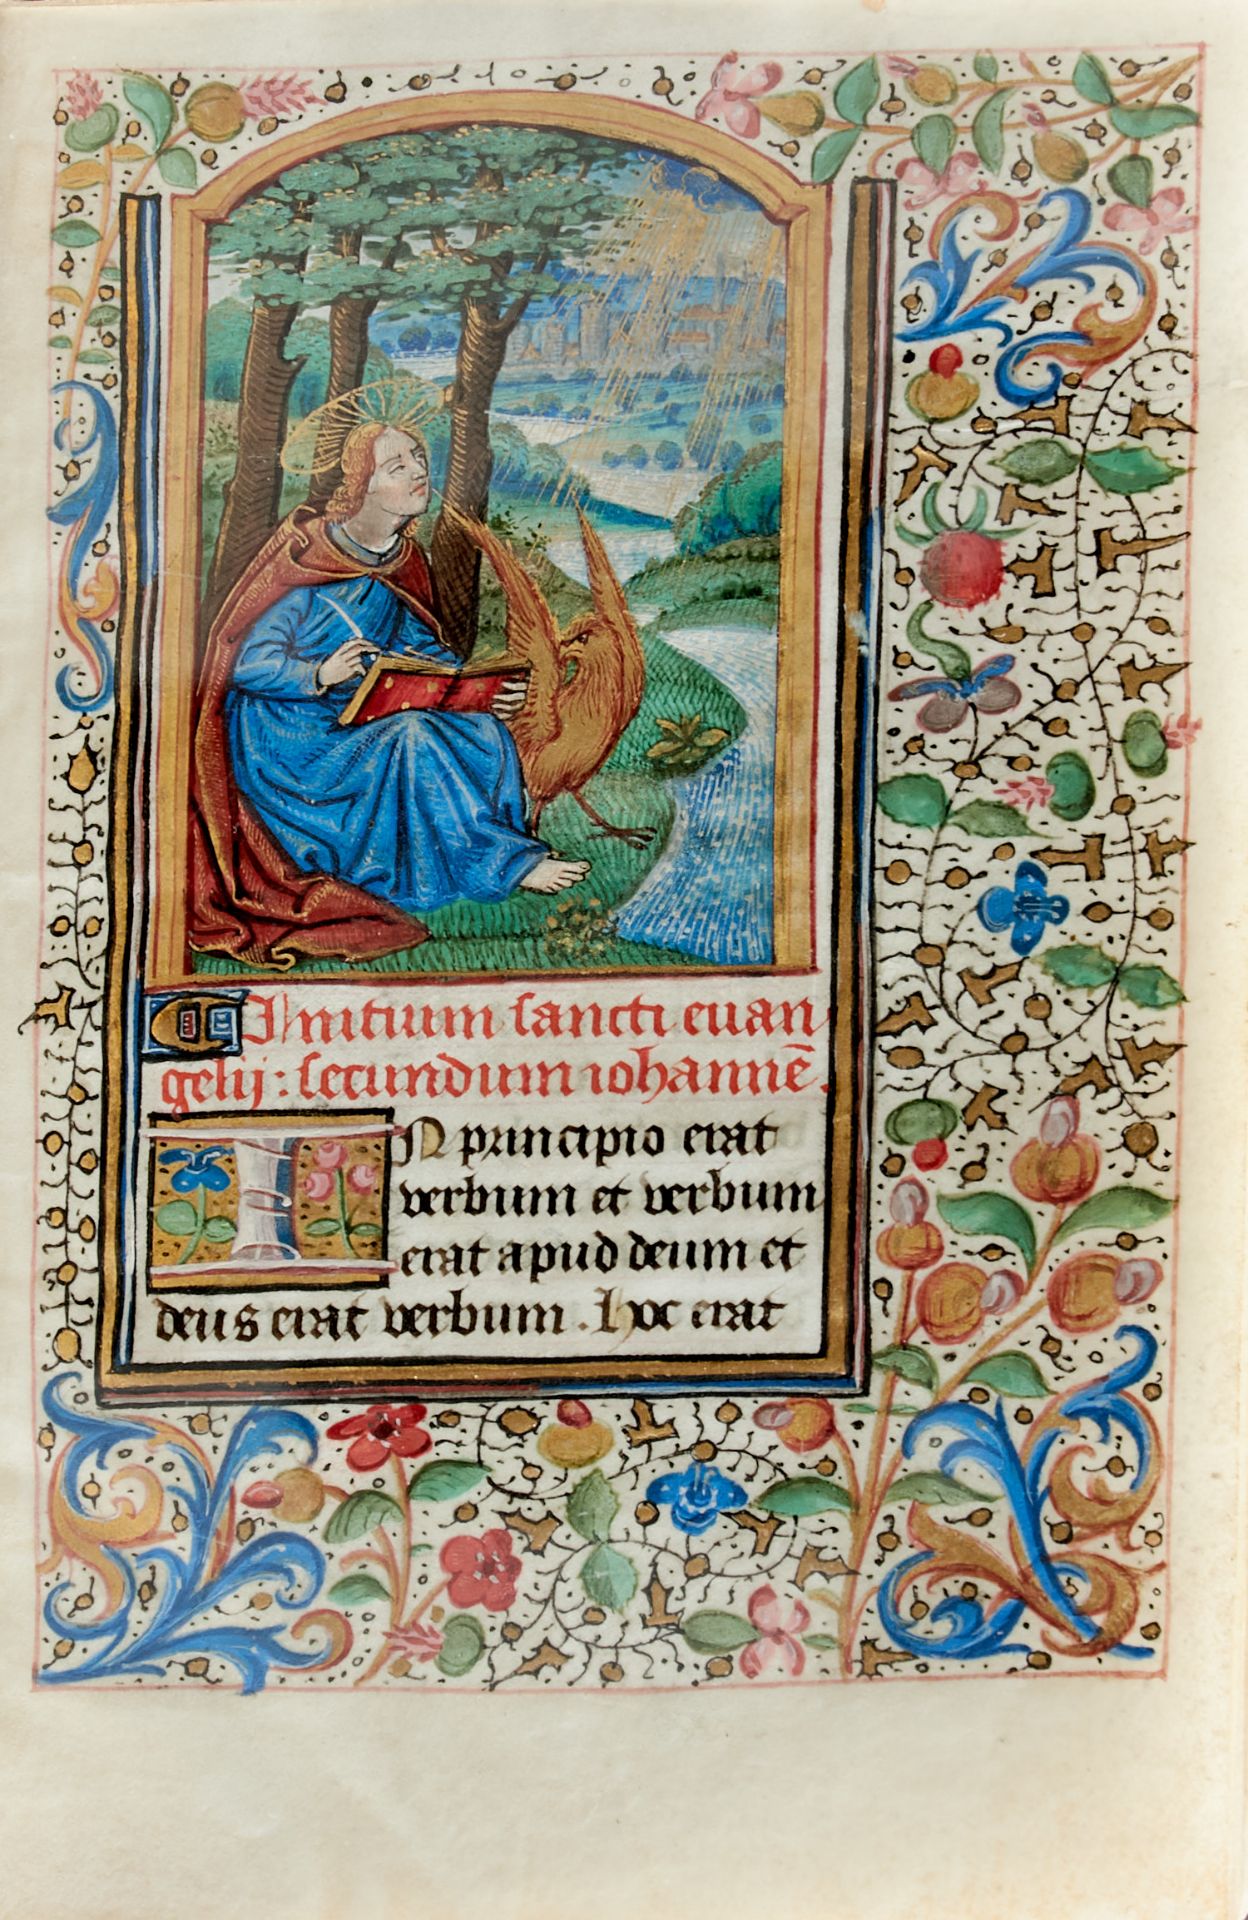 Initium sancti euan
gelij : secundum iohannē .
IN principio erat
verbum et verbum
erat apud deum et
deus erat verbum . hoc erat